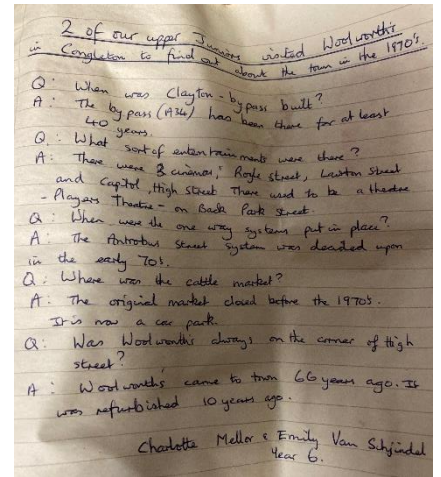 2 of our upper Juniors visited Woolworth's
in Congleton to find out about the town in the 1970's.
Q: When was Clayton-bypass built?
A: The bypass (A34) has been there for at least
40 years.
Q: What sort of entertainments were there?
A: There were 3 cinemas; Royle Street, Lawton Street
and Capitol, High Street There used to be a theatre
- Players Theatre - on Back Park Street.
Q: When were the one way systems put in place?
A: The Antrobus Street System was decided upon
in the early 70s.
Q: Where was the cattle market?
A: The original market closed before the 1970s.
It is now a car park.
Q: Was Woolworths always on the corner of High
street?
A: Woolworths came to town 66 years ago. It
was refurbished 10 years ago.
Charlotte Mellor & Emily Van Schijndel
Year 6.